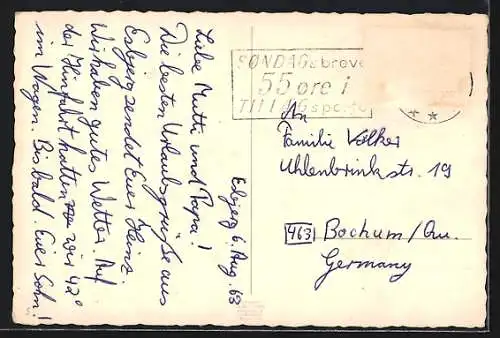 Esbjerg 6. Aug. 63
Liebe Mutti und Papa!
Die besten Urlaubsgrüße aus
Esbjerg sendet Euer Heinz.
Wir haben gutes Wetter. Auf
der Hinfahrt hatten wir 42°
im Wagen. Bis bald. Euer Sohn!
SØNDAGsbreve
55 øre i
TILLÆGsporto
An
Familie Völker
Uhlenbrinkstr. 19
463 Bochum/Qu.
Germany